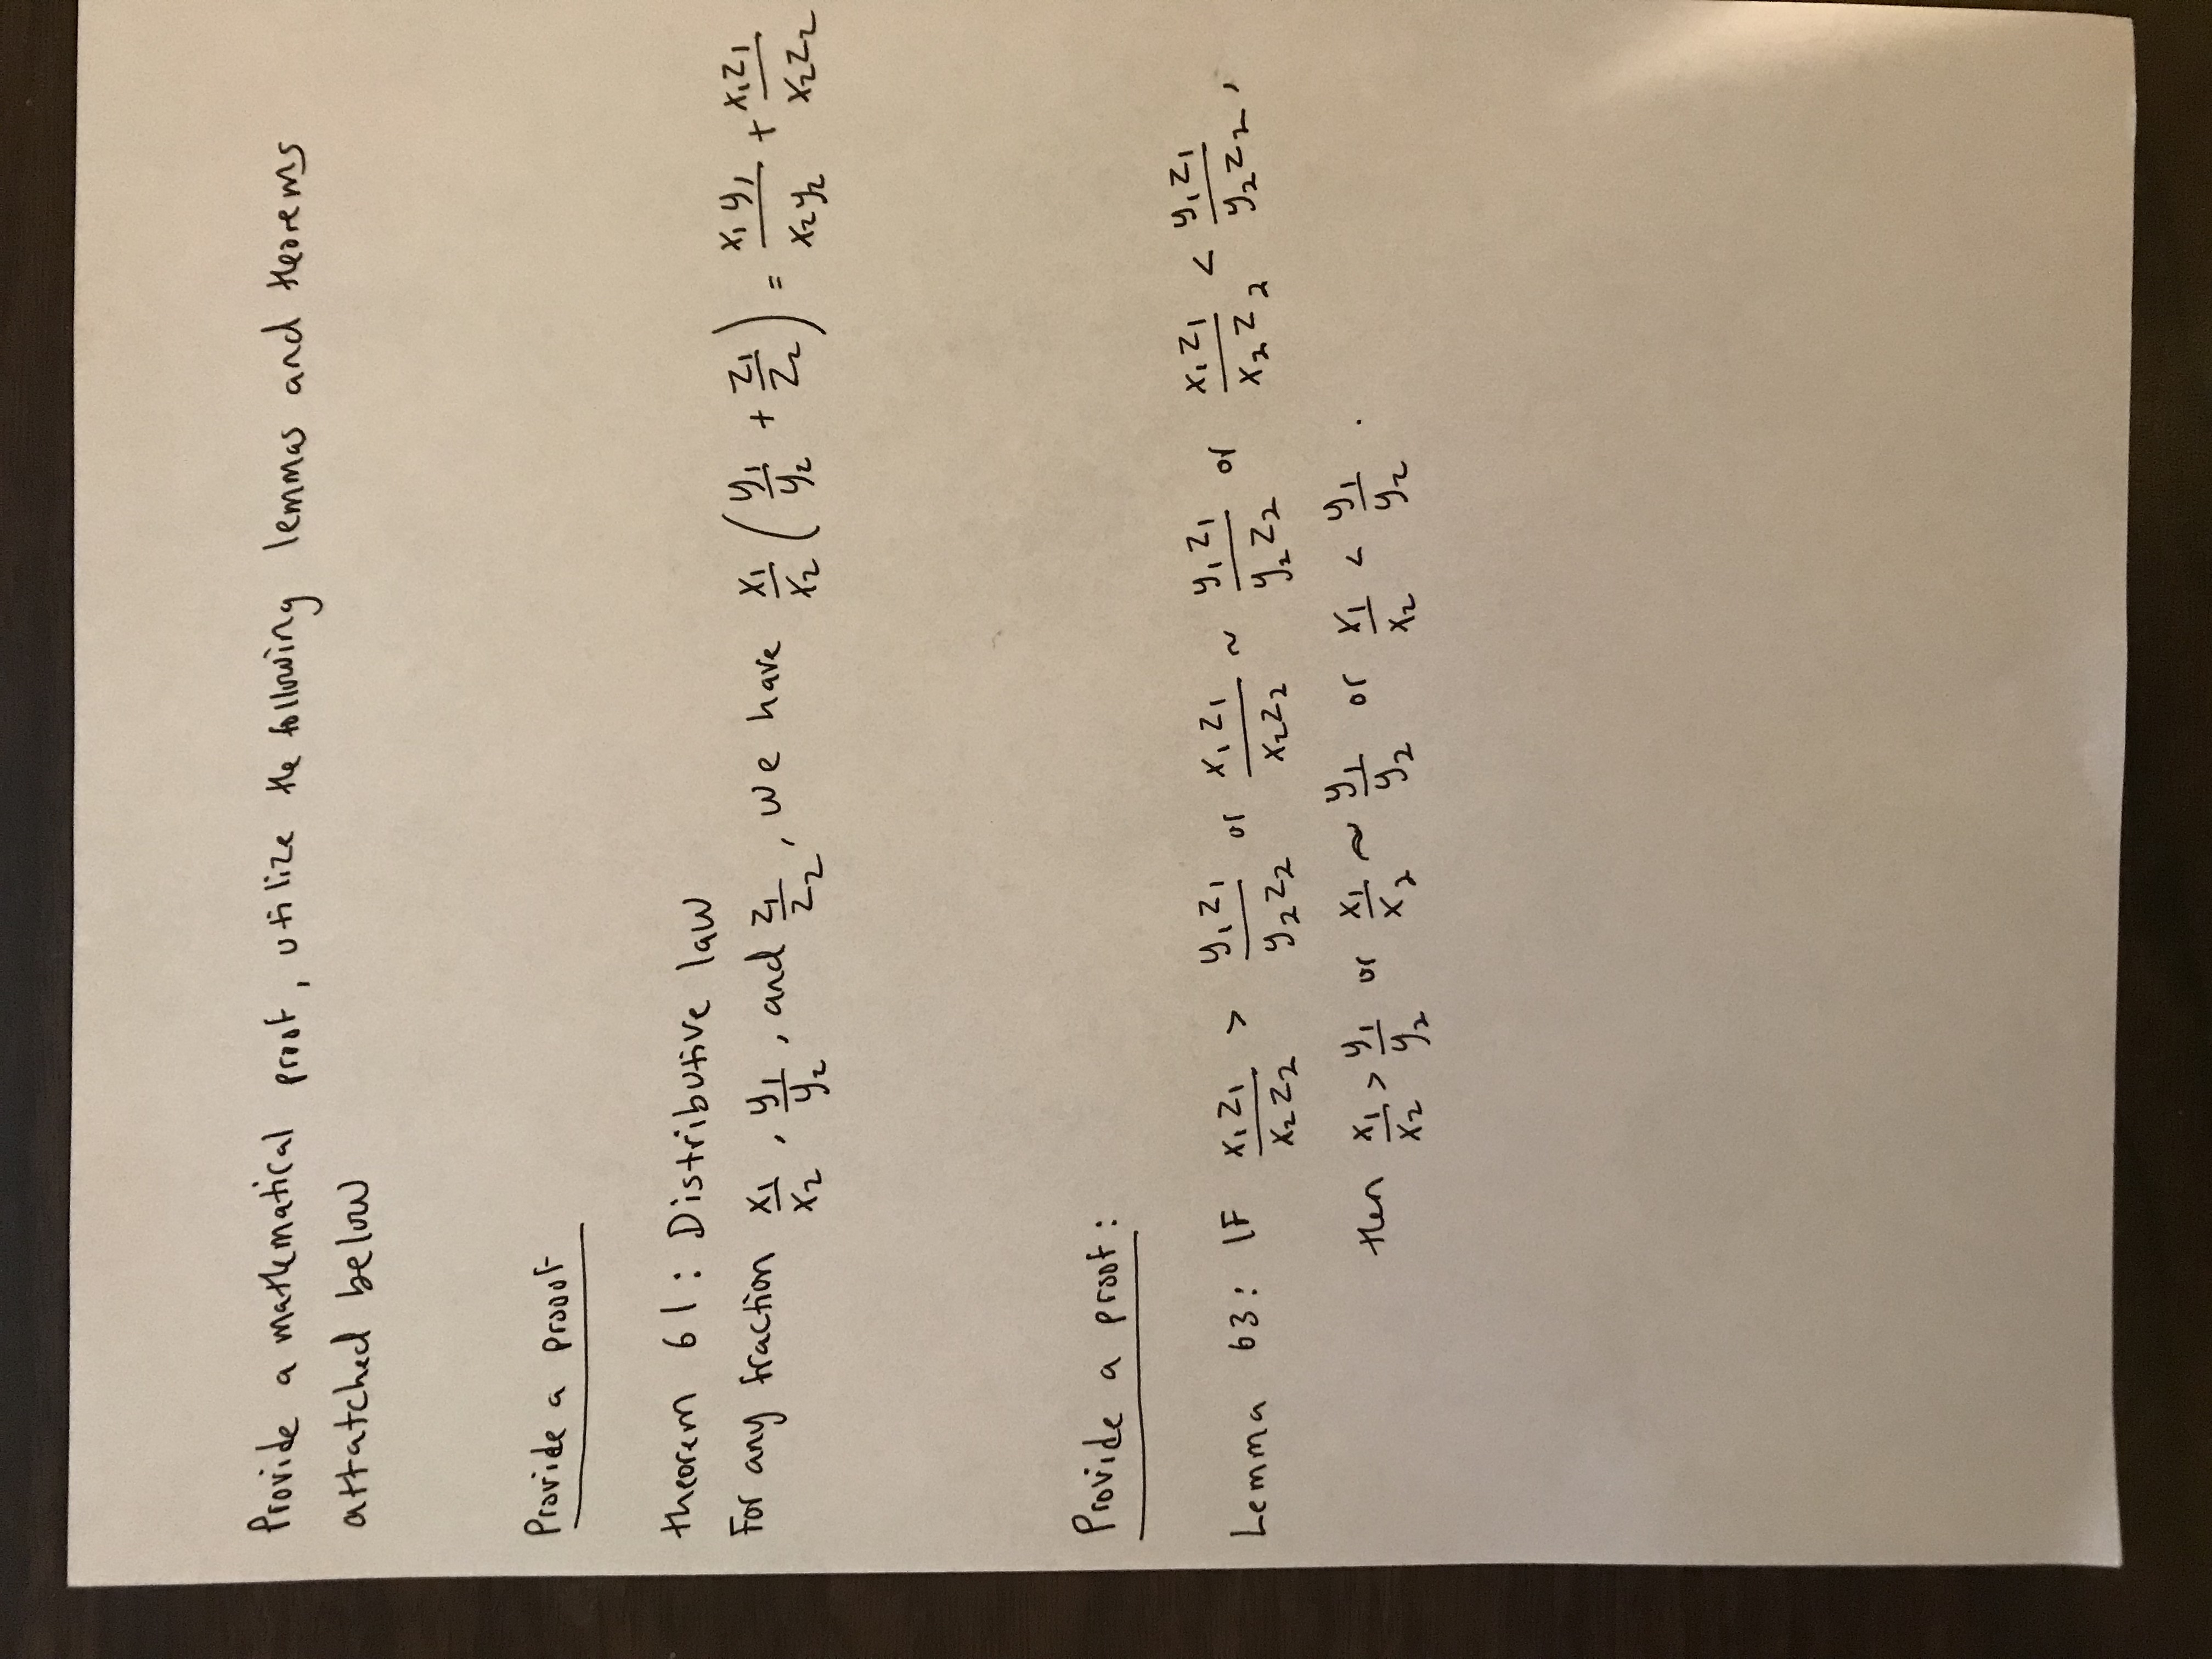 Provide a mathematical proof, utilize the following lemmas and theorems
attatched below
Provide a prooof
theorem 61: Distributive law
For any fraction x₁/x₂, y₁/y₂, and z₁/z₂, we have x₁/x₂ (y₁/y₂ + z₁/z₂) = x₁y₁/x₂y₂ + x₁z₁/x₂z₂
Provide a proof:
Lemma 63: IF x₁z₁/x₂z₂ > y₁z₁/y₂z₂ or x₁z₁/x₂z₂ ~ y₁z₁/y₂z₂ or x₁z₁/x₂z₂ < y₁z₁/y₂z₂,
then x₁/x₂ > y₁/y₂ or x₁/x₂ ~ y₁/y₂ or x₁/x₂ < y₁/y₂.